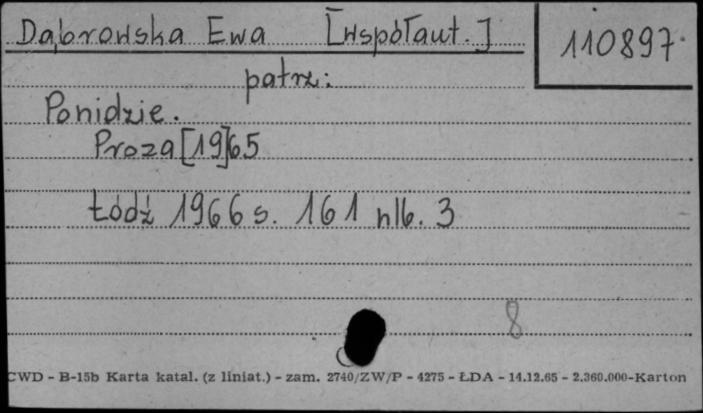 Dąbrowska Ewa [Współaut.]
110897
patrz:
Ponidzie.
Proza [19]65
Łódź 1966 s. 161 nlb. 3
8
CWD - B-15b Karta katal. (z liniat.) - zam. 2740/ZW/P - 4275 - ŁDA - 14.12.65 - 2.360.000 - Karton